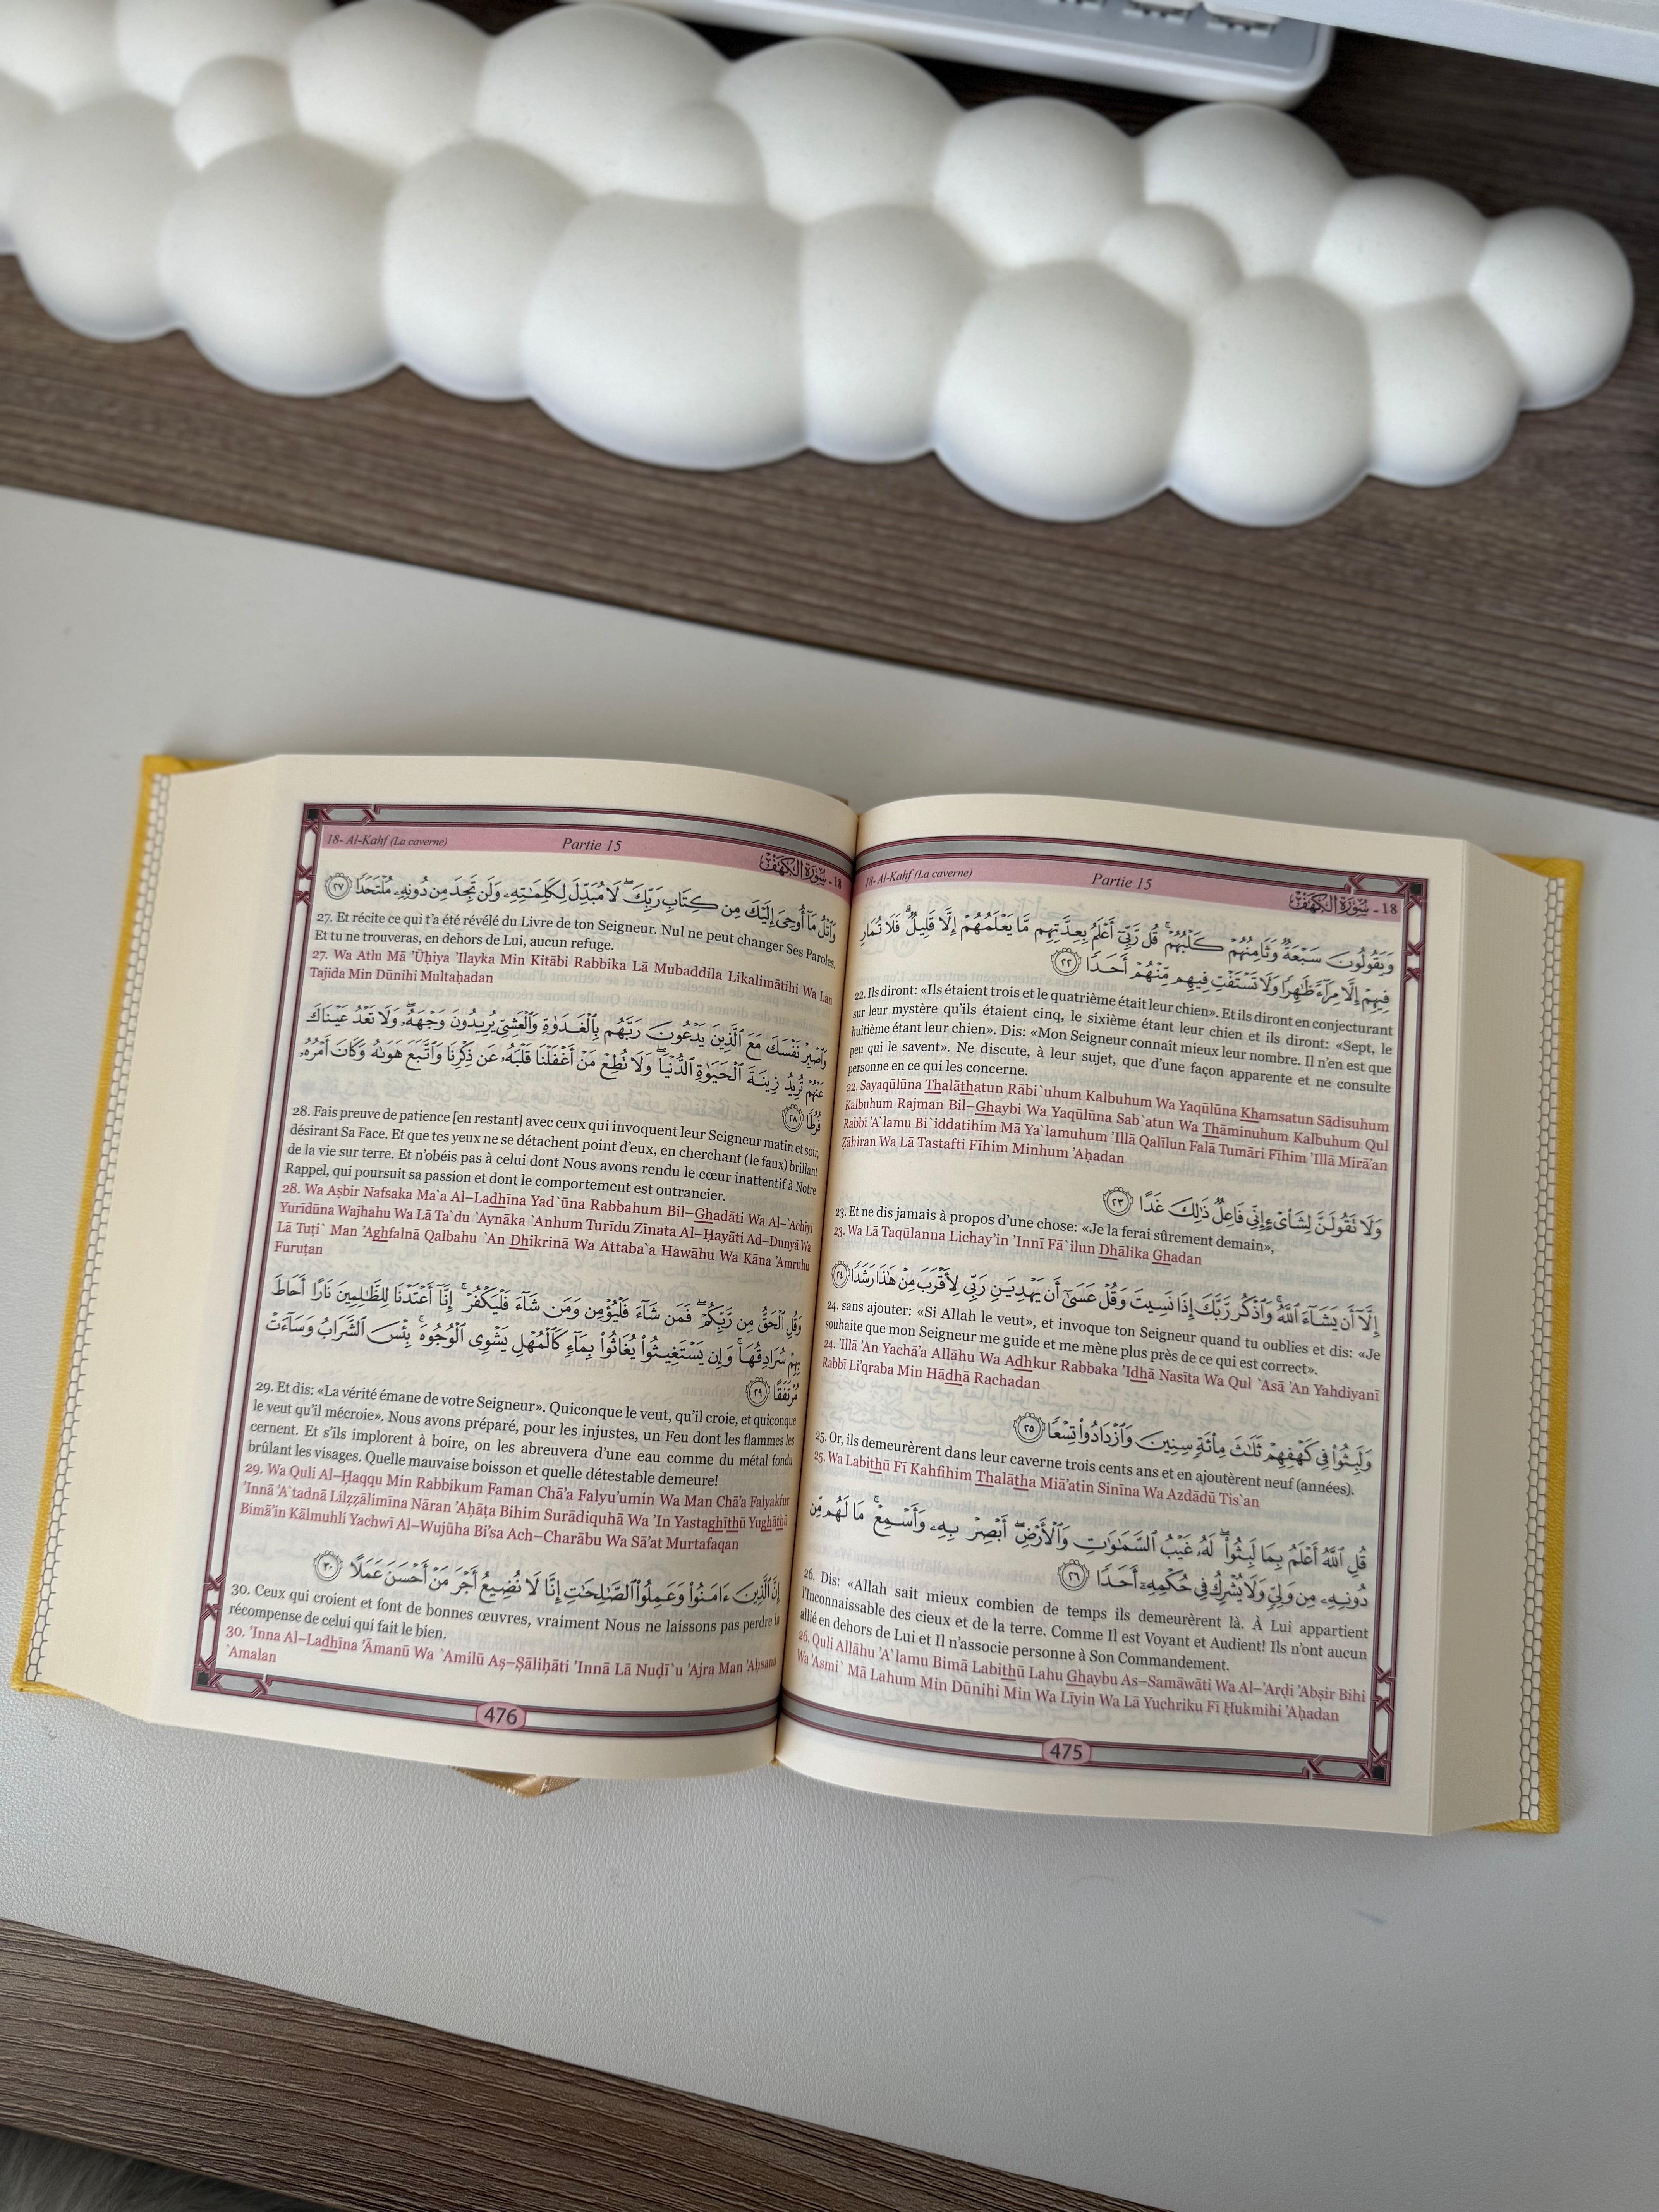 18- Al-Kahf (La caverne) Partie 15 سُورَةُ الكَهْف - 18
وَيَقُولُونَ سَبْعَةٌ وَثَامِنُهُمْ كَلْبُهُمْ ۚ قُل رَّبِّىٓ أَعْلَمُ بِعِدَّتِهِم مَّا يَعْلَمُهُمْ إِلَّا قَلِيلٌ ۗ فَلَا تُمَارِ
فِيهِمْ إِلَّا مِرَآءً ظَٰهِرًا وَلَا تَسْتَفْتِ فِيهِم مِّنْهُمْ أَحَدًا ٢٢
22. Ils diront: «Ils étaient trois et le quatrième était leur chien». Et ils diront en conjecturant
sur leur mystère qu’ils étaient cinq, le sixième étant leur chien et ils diront: «Sept, le
huitième étant leur chien». Dis: «Mon Seigneur connaît mieux leur nombre. Il n’en est que
peu qui le savent». Ne discute, à leur sujet, que d’une façon apparente et ne consulte
personne en ce qui les concerne.
22. Sayaqūlūna Thalāthatun Rābi`uhum Kalbuhum Wa Yaqūlūna Khamsatun Sādisuhum
Kalbuhum Rajman Bil–Ghaybi Wa Yaqūlūna Sab`atun Wa Thāminuhum Kalbuhum Qul
Rabbī 'A`lamu Bi`iddatihim Mā Ya`lamuhum 'Illā Qalīlun Falā Tumāri Fīhim 'Illā Mirā'an
Ẓāhiran Wa Lā Tastafti Fīhim Minhum 'Aḥadan
وَلَا تَقُولَنَّ لِشَاْىْءٍ إِنِّى فَاعِلٌ ذَٰلِكَ غَدًا ٢٣
23. Et ne dis jamais à propos d’une chose: «Je la ferai sûrement demain»,
23. Wa Lā Taqūlanna Lichay'in 'Innī Fā`ilun Dhālika Ghadan
إِلَّآ أَن يَشَآءَ ٱللَّهُ ۚ وَٱذْكُر رَّبَّكَ إِذَا نَسِيتَ وَقُلْ عَسَىٰٓ أَن يَهْدِيَنِ رَبِّى لِأَقْرَبَ مِنْ هَٰذَا رَشَدًا ٢٤
24. sans ajouter: «Si Allah le veut», et invoque ton Seigneur quand tu oublies et dis: «Je
souhaite que mon Seigneur me guide et me mène plus près de ce qui est correct».
24. 'Illā 'An Yachā'a Allāhu Wa Adhkur Rabbaka 'Idhā Nasīta Wa Qul `Asā 'An Yahdiyanī
Rabbī Li'qraba Min Hādhā Rachadan
وَلَبِثُوا۟ فِى كَهْفِهِمْ ثَلَٰثَ مِا۟ئَةٍ سِنِينَ وَٱزْدَادُوا۟ تِسْعًا ٢٥
25. Or, ils demeurèrent dans leur caverne trois cents ans et en ajoutèrent neuf (années).
25. Wa Labithū Fī Kahfihim Thalātha Miā'atin Sinīna Wa Azdādū Tis`an
قُلِ ٱللَّهُ أَعْلَمُ بِمَا لَبِثُوا۟ ۖ لَهُۥ غَيْبُ ٱلسَّمَٰوَٰتِ وَٱلْأَرْضِ ۖ أَبْصِرْ بِهِۦ وَأَسْمِعْ ۚ مَا لَهُم مِّن
دُونِهِۦ مِن وَلِىٍّ وَلَا يُشْرِكُ فِى حُكْمِهِۦٓ أَحَدًا ٢٦
26. Dis: «Allah sait mieux combien de temps ils demeurèrent là. À Lui appartient
l’Inconnaissable des cieux et de la terre. Comme Il est Voyant et Audient! Ils n’ont aucun
allié en dehors de Lui et Il n’associe personne à Son Commandement.
26. Quli Allāhu 'A`lamu Bimā Labithū Lahu Ghaybu As–Samāwāti Wa Al–'Arḍi 'Abṣir Bihi
Wa 'Asmi` Mā Lahum Min Dūnihi Min Wa Līyin Wa Lā Yuchriku Fī Ḥukmihi 'Aḥadan
475
18- Al-Kahf (La caverne) Partie 15 سُورَةُ الكَهْف - 18
وَٱتْلُ مَآ أُوحِىَ إِلَيْكَ مِن كِتَابِ رَبِّكَ ۖ لَا مُبَدِّلَ لِكَلِمَٰتِهِۦ وَلَن تَجِدَ مِن دُونِهِۦ مُلْتَحَدًا ٢٧
27. Et récite ce qui t’a été révélé du Livre de ton Seigneur. Nul ne peut changer Ses Paroles.
Et tu ne trouveras, en dehors de Lui, aucun refuge.
27. Wa Atlu Mā 'Ūḥiya 'Ilayka Min Kitābi Rabbika Lā Mubaddila Likalimātihi Wa Lan
Tajida Min Dūnihi Multaḥadan
وَٱصْبِرْ نَفْسَكَ مَعَ ٱلَّذِينَ يَدْعُونَ رَبَّهُم بِٱلْغَدَوٰةِ وَٱلْعَشِىِّ يُرِيدُونَ وَجْهَهُۥ ۖ وَلَا تَعْدُ عَيْنَاكَ
عَنْهُمْ تُرِيدُ زِينَةَ ٱلْحَيَوٰةِ ٱلدُّنْيَا ۖ وَلَا تُطِعْ مَنْ أَغْفَلْنَا قَلْبَهُۥ عَن ذِكْرِنَا وَٱتَّبَعَ هَوَىٰهُ وَكَانَ أَمْرُهُۥ
فُرُطًا ٢٨
28. Fais preuve de patience [en restant] avec ceux qui invoquent leur Seigneur matin et soir,
désirant Sa Face. Et que tes yeux ne se détachent point d’eux, en cherchant (le faux) brillant
de la vie sur terre. Et n’obéis pas à celui dont Nous avons rendu le cœur inattentif à Notre
Rappel, qui poursuit sa passion et dont le comportement est outrancier.
28. Wa Aṣbir Nafsaka Ma`a Al–Ladhīna Yad`ūna Rabbahum Bil–Ghadāti Wa Al–`Achīyi
Yurīdūna Wajhahu Wa Lā Ta`du `Aynāka `Anhum Turīdu Zīnata Al–Ḥayāti Ad–Dunyā Wa
Lā Tuṭi` Man 'Aghfalnā Qalbahu `An Dhikrinā Wa Attaba`a Hawāhu Wa Kāna 'Amruhu
Furuṭan
وَقُلِ ٱلْحَقُّ مِن رَّبِّكُمْ ۖ فَمَن شَآءَ فَلْيُؤْمِن وَمَن شَآءَ فَلْيَكْفُرْ ۚ إِنَّآ أَعْتَدْنَا لِلظَّٰلِمِينَ نَارًا أَحَاطَ
بِهِمْ سُرَادِقُهَا ۚ وَإِن يَسْتَغِيثُوا۟ يُغَاثُوا۟ بِمَآءٍ كَٱلْمُهْلِ يَشْوِى ٱلْوُجُوهَ ۚ بِئْسَ ٱلشَّرَابُ وَسَآءَتْ
مُرْتَفَقًا ٢٩
29. Et dis: «La vérité émane de votre Seigneur». Quiconque le veut, qu’il croie, et quiconque
le veut qu’il mécroie». Nous avons préparé, pour les injustes, un Feu dont les flammes les
cernent. Et s’ils implorent à boire, on les abreuvera d’une eau comme du métal fondu
brûlant les visages. Quelle mauvaise boisson et quelle détestable demeure!
29. Wa Quli Al–Ḥaqqu Min Rabbikum Faman Chā'a Falyu'umin Wa Man Chā'a Falyakfur
'Innā 'A`tadnā Lilẓẓālimīna Nāran 'Aḥāṭa Bihim Surādiquhā Wa 'In Yastaghīthū Yughāthū
Bimā'in Kālmuhli Yachwī Al–Wujūha Bi'sa Ach–Charābu Wa Sā'at Murtafaqan
إِنَّ ٱلَّذِينَ ءَامَنُوا۟ وَعَمِلُوا۟ ٱلصَّٰلِحَٰتِ إِنَّا لَا نُضِيعُ أَجْرَ مَنْ أَحْسَنَ عَمَلًا ٣٠
30. Ceux qui croient et font de bonnes œuvres, vraiment Nous ne laissons pas perdre la
récompense de celui qui fait le bien.
30. 'Inna Al–Ladhīna 'Āmanū Wa `Amilū Aṣ–Ṣāliḥāti 'Innā Lā Nuḍī`u 'Ajra Man 'Aḥsana
`Amalan
476